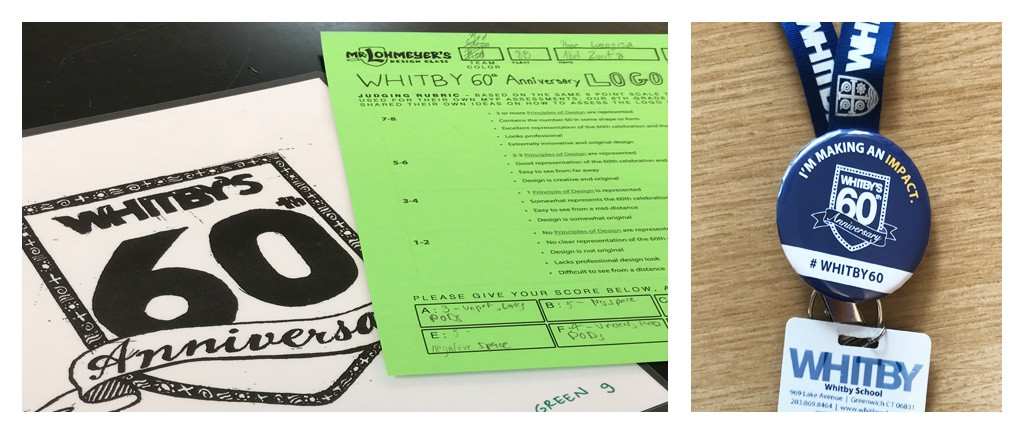 WHITBY'S
60th
Anniversa
GREEN 9
MR. LOHMEYER'S
DESIGN CLASS
TEAM
COLOR
8B
CLASS
WHITBY 60th Anniversary LOGO
JUDGING RUBRIC - BASED ON THE SAME 8 POINT SCALE
USED FOR THEIR OWN MYP ASSESSMENTS, OUR 8TH GRADE
SHARED THEIR OWN IDEAS ON HOW TO ASSESS THE LOGO
7-8
• 3 or more Principles of Design are represented
• Contains the number 60 in some shape or form
• Excellent representation of the 60th celebration and the
• Looks professional
• Extremely innovative and original design
5-6
• 2-3 Principles of Design are represented
• Good representation of the 60th celebration
• Easy to see from far away
• Design is creative and original
3-4
• 1 Principle of Design is represented
• Somewhat represents the 60th celebration
• Easy to see from a mid-distance
• Design is somewhat original
1-2
• No Principles of Design are represent
• No clear representation of the 60th
• Design is not original
• Lacks professional design look
• Difficult to see from a distance
PLEASE GIVE YOUR SCORE BELOW, A
A: 3
PODs
B: 5
C
E:
negative space
F: 4
PODs
WHITBY
WHIT
I'M MAKING AN IMPACT.
WHITBY'S
60th
Anniversary
# WHITBY60
WHITBY
Whitby School
969 Lake Avenue | Greenwich CT 06831
203.869.8464 | www.whitby